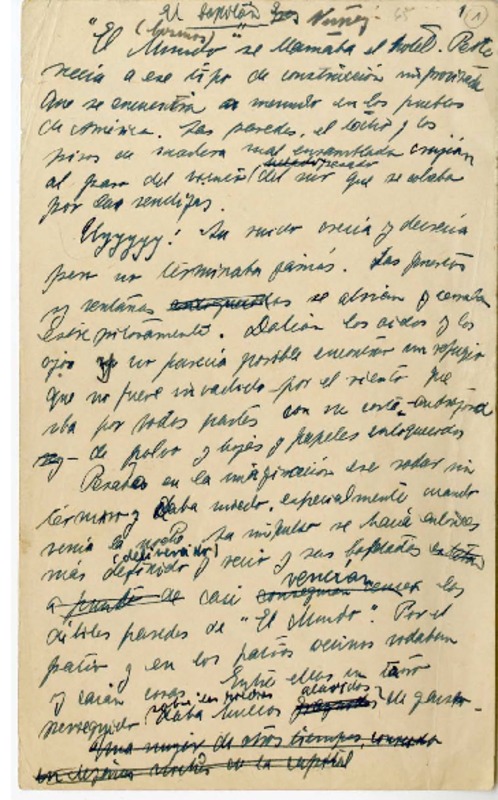 1 (1)
"El Mundo" se llamaba el hotel. Perte
necía a ese tipo de construcción improvisada
que se encuentra a menudo en los pueblos
de América. Las paredes, el techo y los
pisos de madera mal ensamblada crujían
al paso del viento del sur que se colaba
por las rendijas.
Uyyyyy! Su ruido crecía y decrecía
pero no terminaba jamás. Las puertas
y ventanas se abrían y cerraban
estrepitosamente. Dolían los oídos y los
ojos y no parecía posible encontrar un refugio
que no fuera invadido por el viento que
iba por todas partes con su
de polvo y hojas y papeles enloquecidos
en la imaginación ese rodar sin
término y daba miedo, especialmente cuando
venía la noche. Su impulso se hacía entonces
más definido y recio y sus
casi vencían los
débiles paredes de "El Mundo". Por el
patio y en los patios vecinos rodaban
y caían cosas. Entre ellas un tarro
perseguido daba huecos alaridos de
Una mujer de otros tiempos,
en la capital